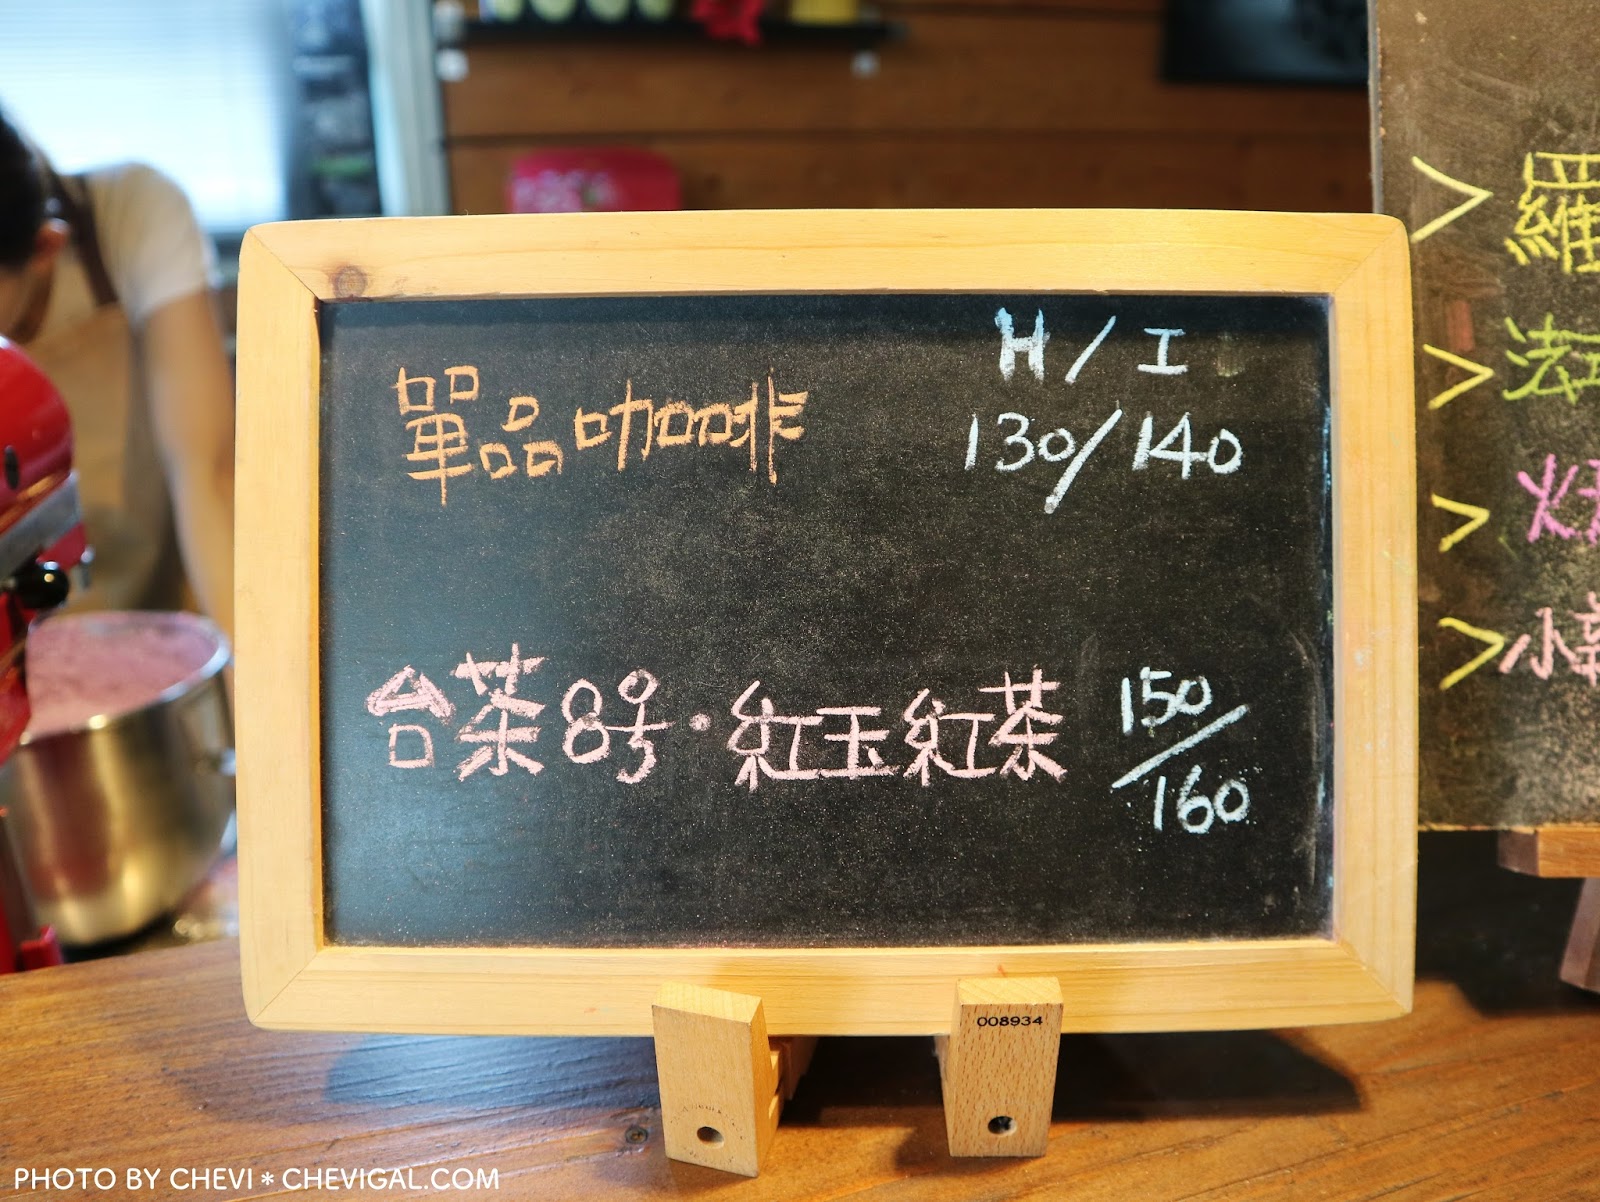 H / I
單品咖啡 130/140
台茶8号·紅玉紅茶 150/160
008934
> 羅
> 法
>
> 小
PHOTO BY CHEVI * CHEVIGAL.COM